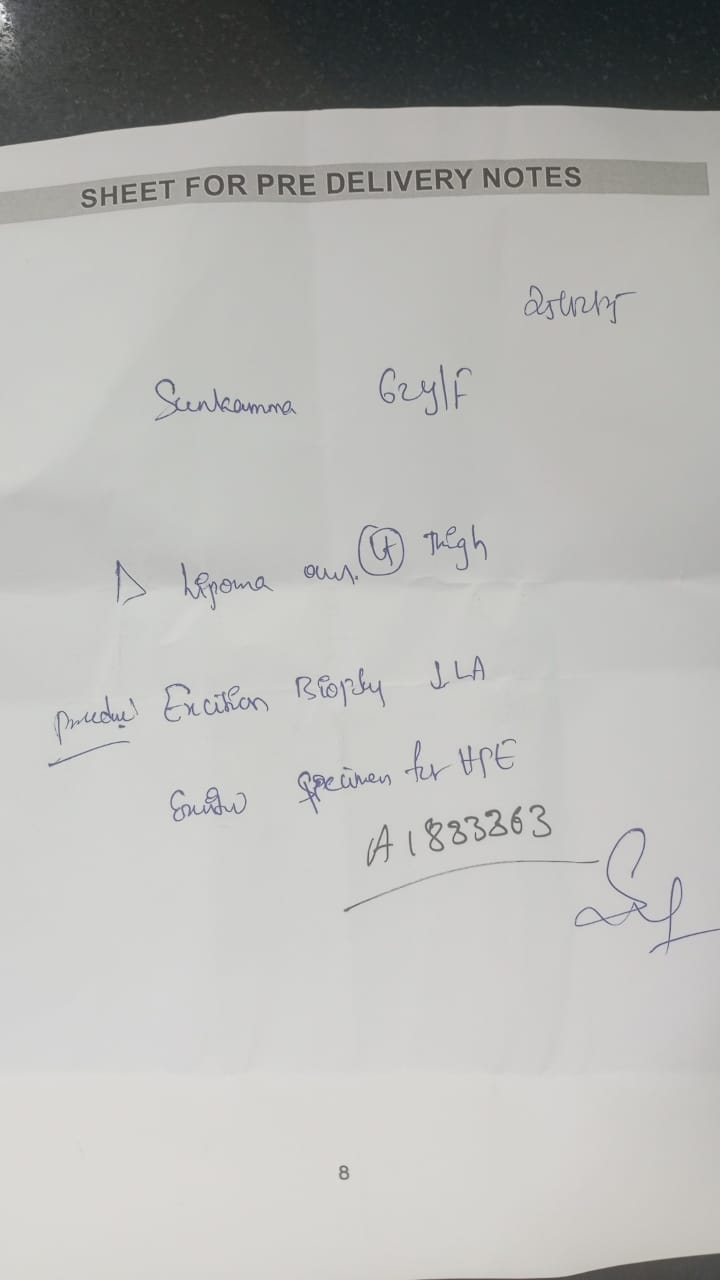 SHEET FOR PRE DELIVERY NOTES
Sunkamma 62y/F
Δ Lipoma over (Lt) Thigh
Procedure Excision Biopsy ↓ LA
Specimen for HPE
A1883363
8